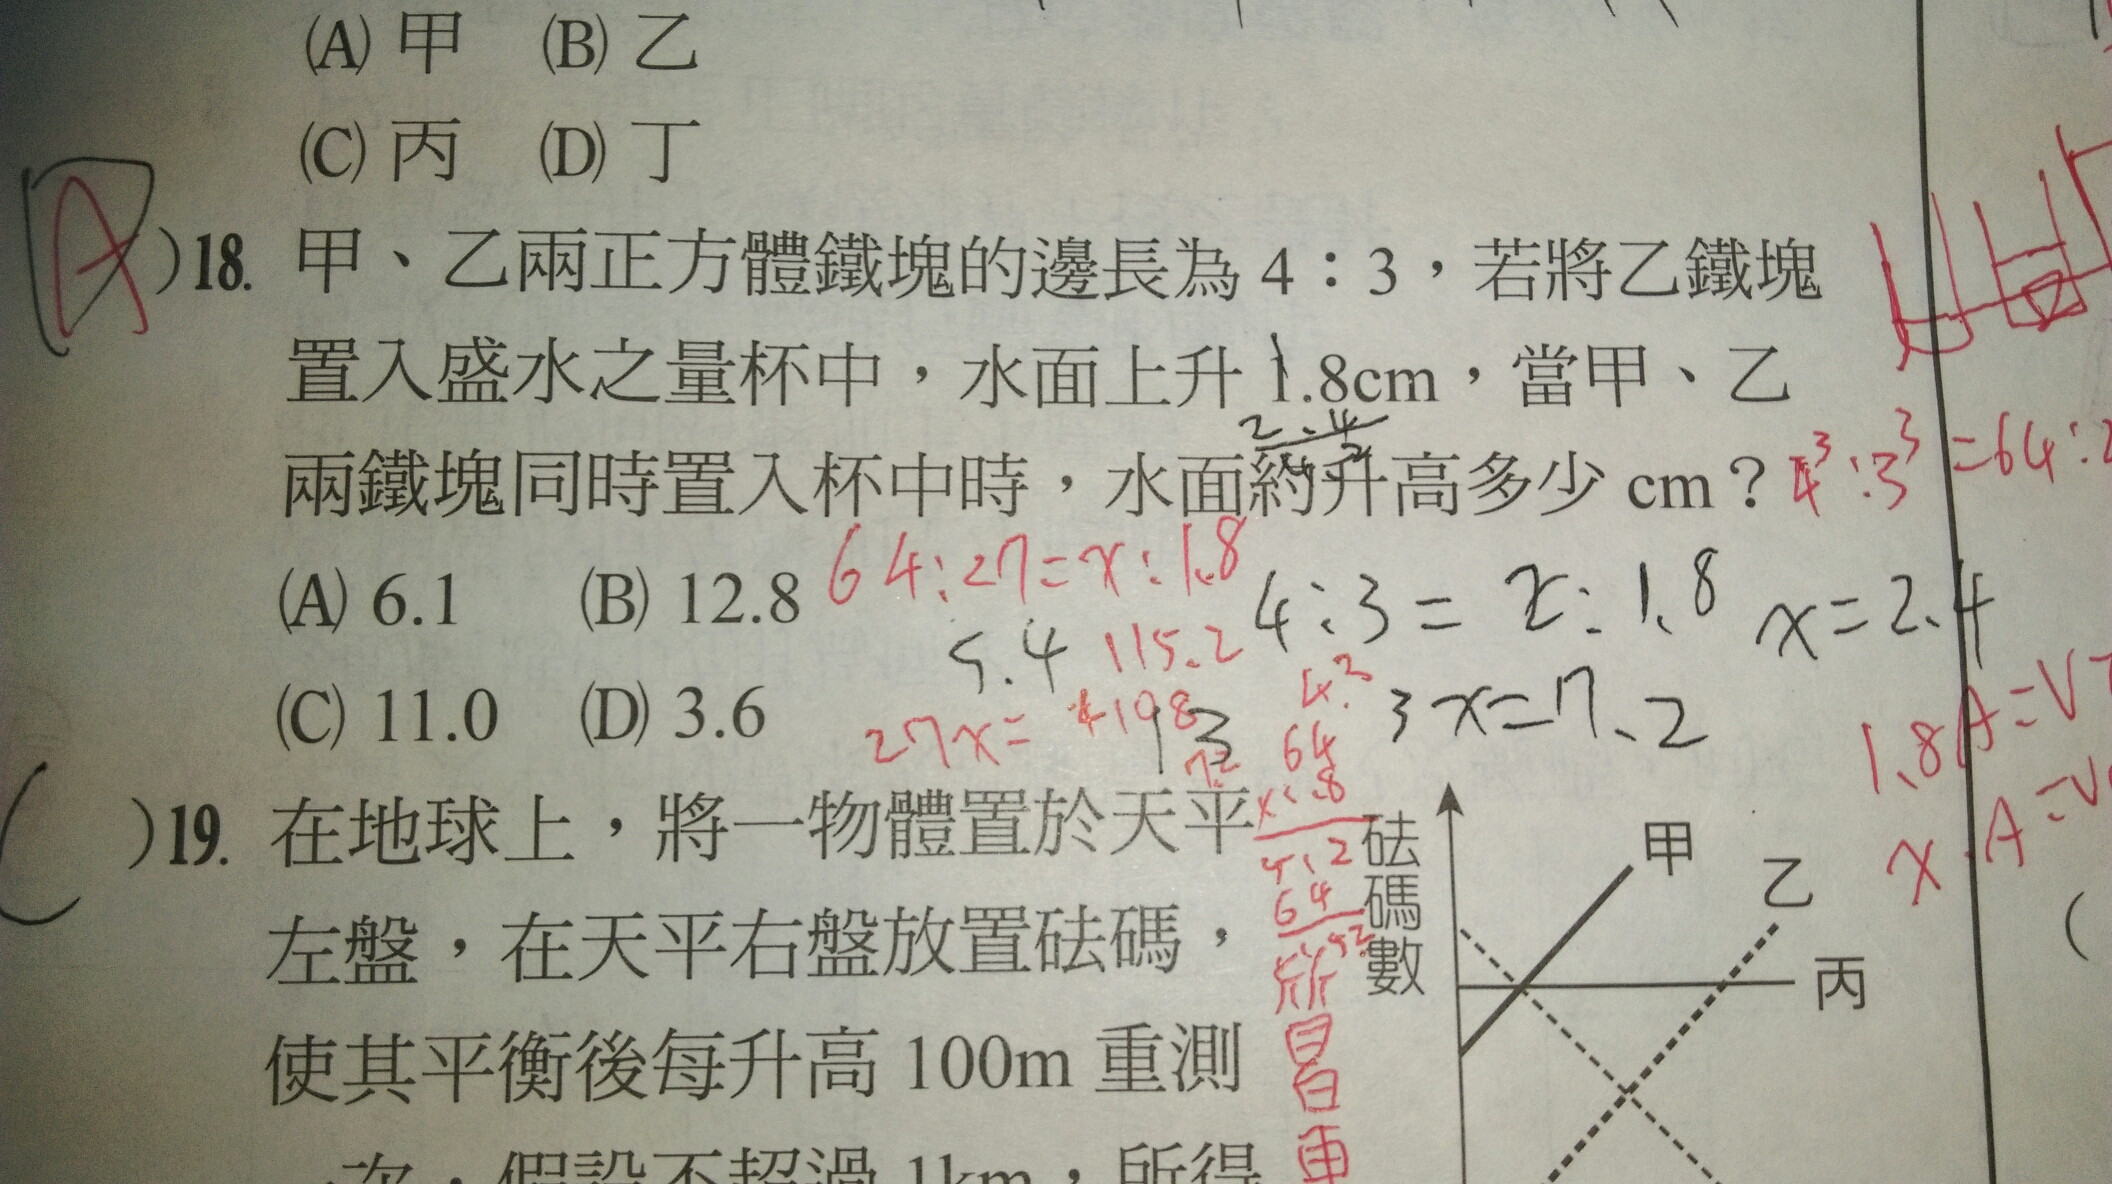 (A) 甲 (B) 乙
(C) 丙 (D) 丁
A )18. 甲、乙兩正方體鐵塊的邊長為 4:3,若將乙鐵塊
置入盛水之量杯中,水面上升 1.8cm,當甲、乙
2.4
兩鐵塊同時置入杯中時,水面約升高多少 cm?
4³:3³=64:2
(A) 6.1 (B) 12.8
64:27=x:1.8
4:3=x:1.8 x=2.4
5.4 115.2
(C) 11.0 (D) 3.6
27x=
3x=7.2
64
1.8A=V
x.A=V
( )19. 在地球上,將一物體置於天平
左盤,在天平右盤放置砝碼,
使其平衡後每升高 100m 重測
一次,假設不超過 1km,所得
砝碼數
甲
乙
丙
(